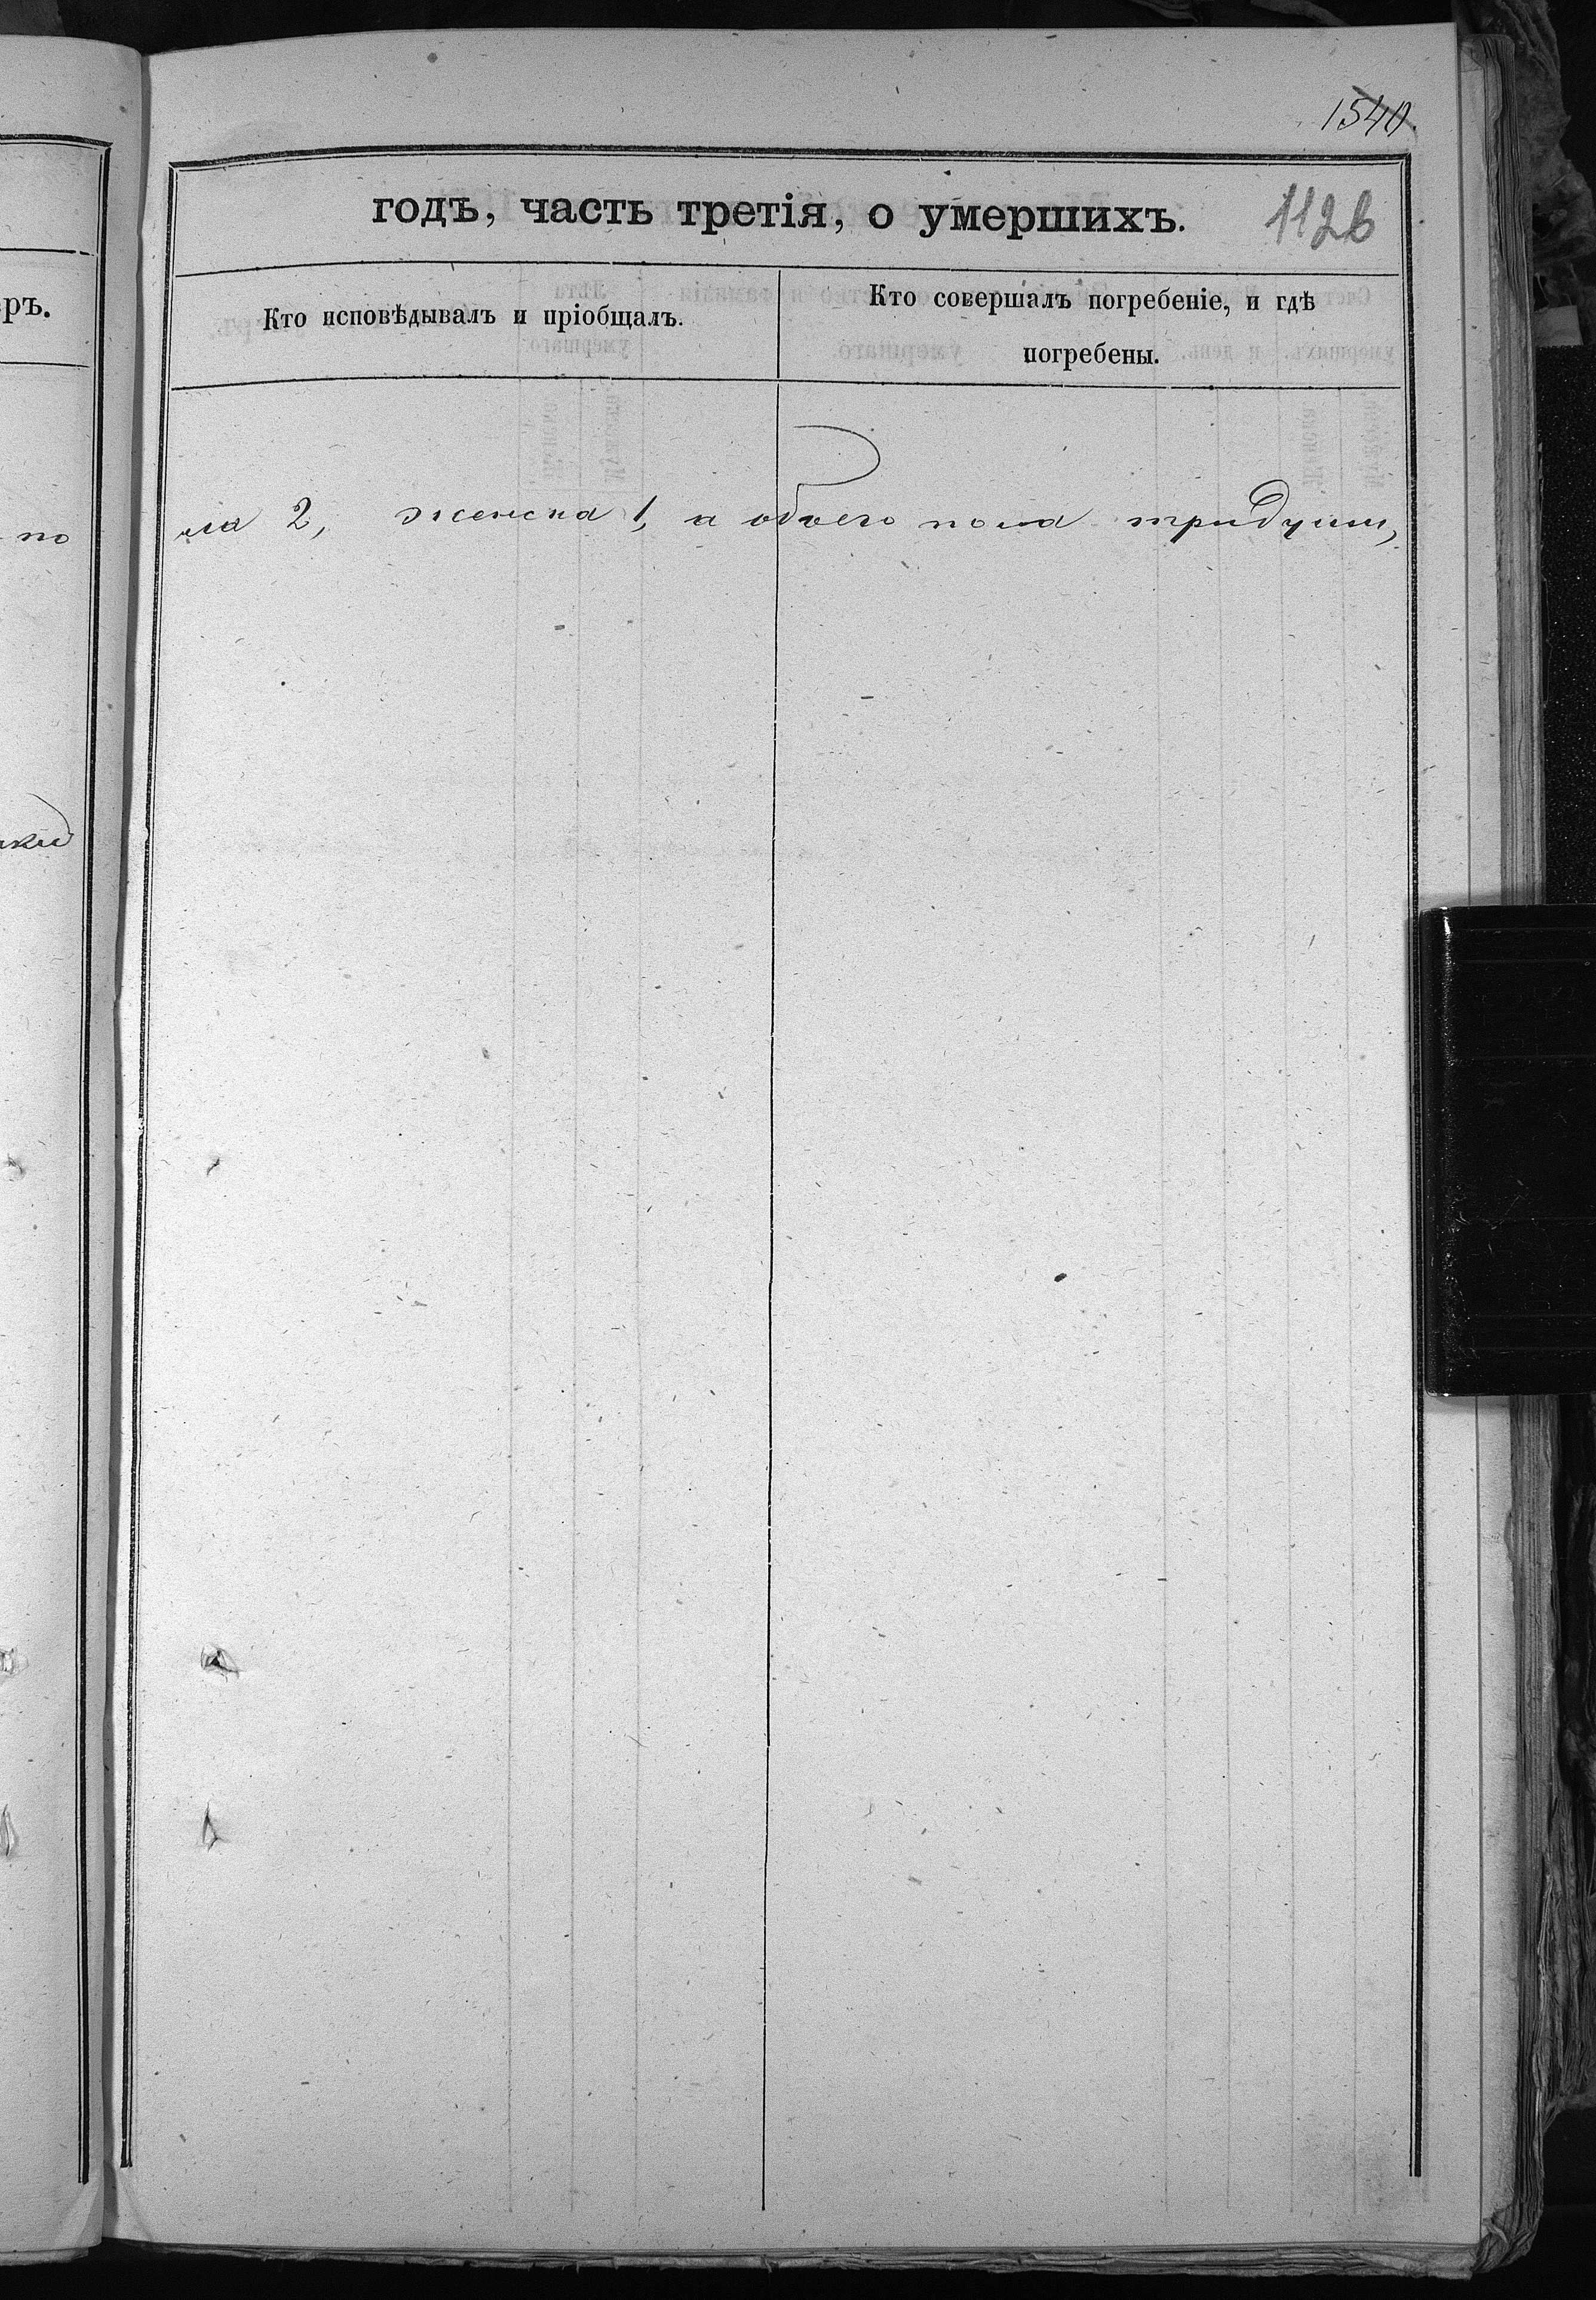 1540.
годъ, часть третія, о умершихъ.
1126
Кто исповѣдывалъ и пріобщалъ.
Кто совершалъ погребеніе, и гдѣ
погребены.
ръ.
по
ла 2, женска 1, а обоего пола три души,